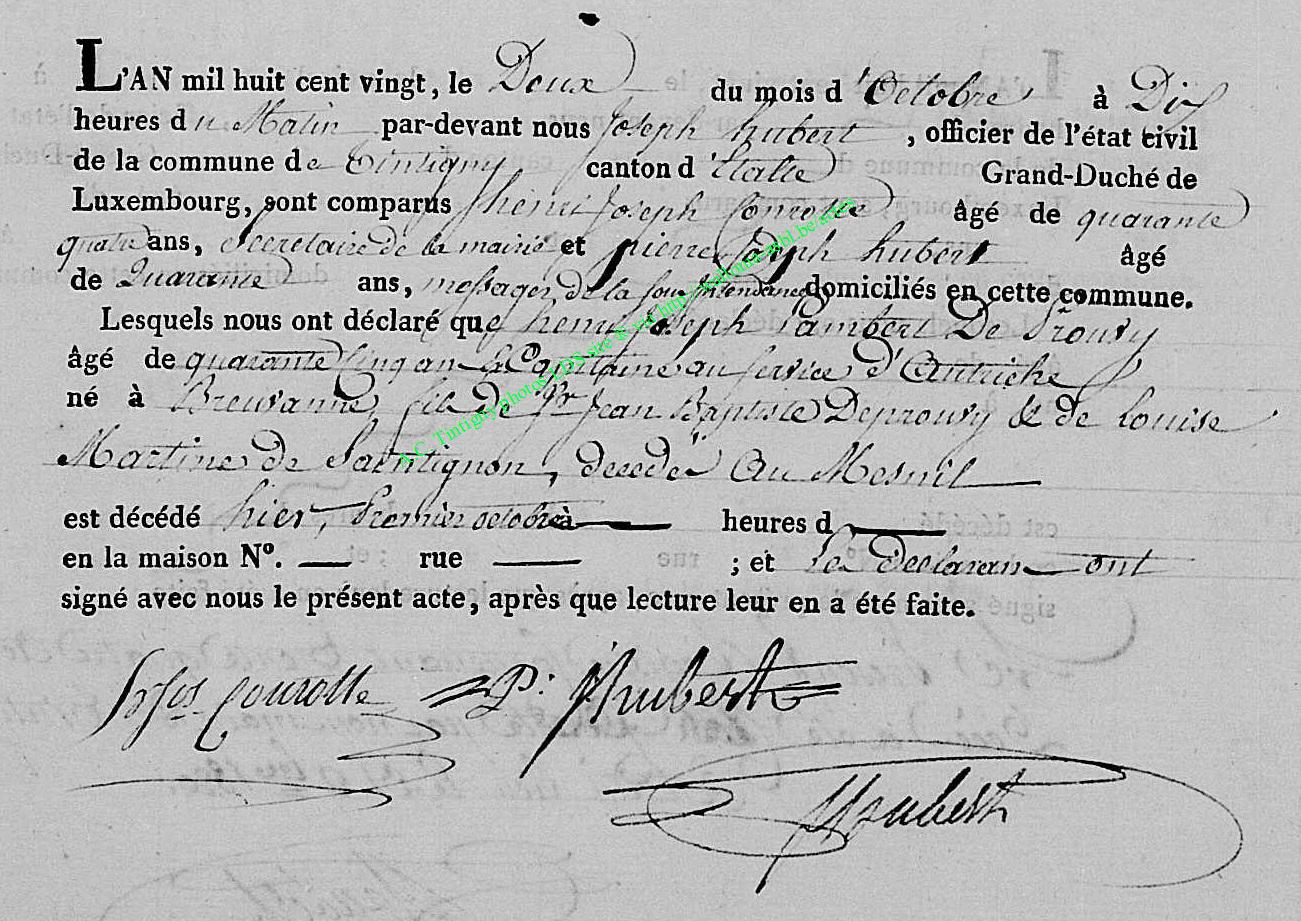 L'AN mil huit cent vingt, le Deux du mois d'Octobre à Dix
heures du Matin par-devant nous Joseph hubert, officier de l'état civil
de la commune de Tintigny canton d'Etalle Grand-Duché de
Luxembourg, sont comparus henri Joseph Courotte âgé de quarante
quatre ans, Secretaire de la mairie et pierre Joseph hubert âgé
de Quarante ans, messager de la domiciliés en cette commune.
Lesquels nous ont déclaré que henri Joseph Lambert De Prouvy
âgé de quarante Cinq ans & Capitaine au service d'Autriche
né à Breuvanne, fils de Sr Jean Baptiste Deprouvy & de Louise
Martine de Saintignon, decedée au Mesnil
est décédé hier, Premier octobre à heures d
en la maison No. rue ; et Les Declarans ont
signé avec nous le présent acte, après que lecture leur en a été faite.
Courotte P. J hubert
J hubert
A.C. Tintigny photos LDS site &